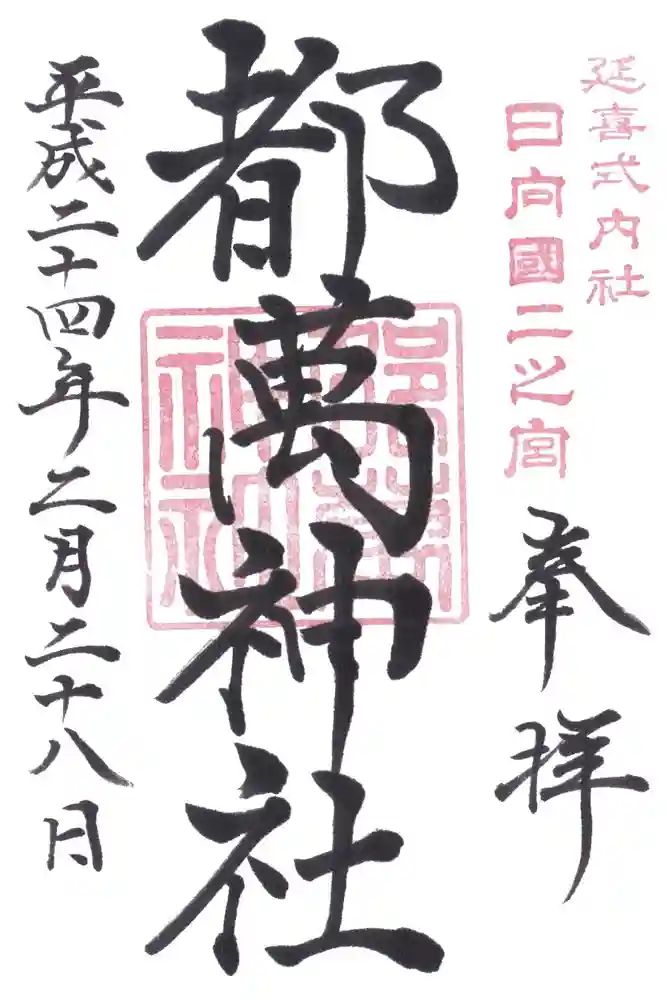 延喜式内社
日向國二之宮
奉拝
都萬神社
都萬
神社
平成二十四年二月二十八日